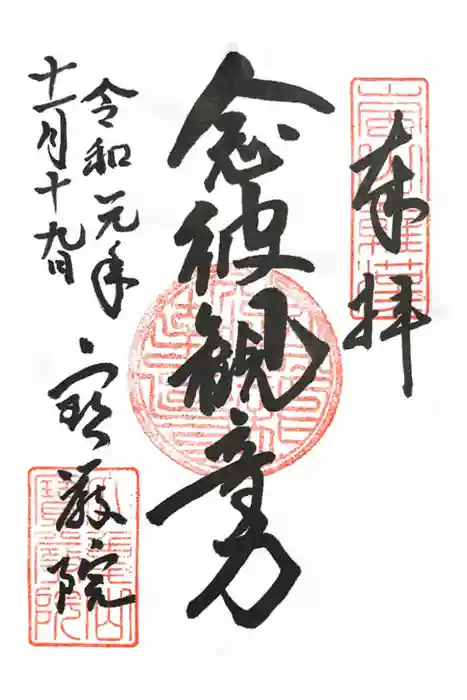 奉拝
念彼観音力
令和元年
十一月十九日
宝厳院